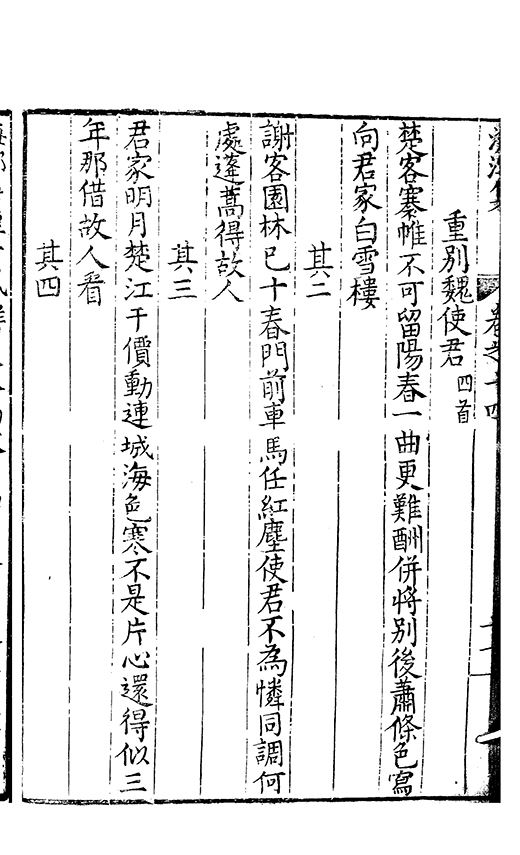 重別魏使君四首
楚客褰帷不可留陽春一曲更難酬併將別後蕭條色寫
向君家白雪樓
其二
謝客園林已十春門前車馬任紅塵使君不為憐同調何
處蓬蒿得故人
其三
君家明月楚江干價動連城海色寒不是片心還得似三
年那借故人看
其四